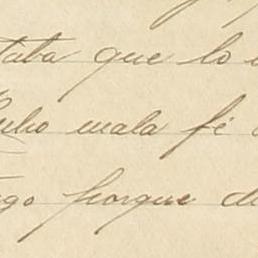 taba que lo
mala fé
go porque